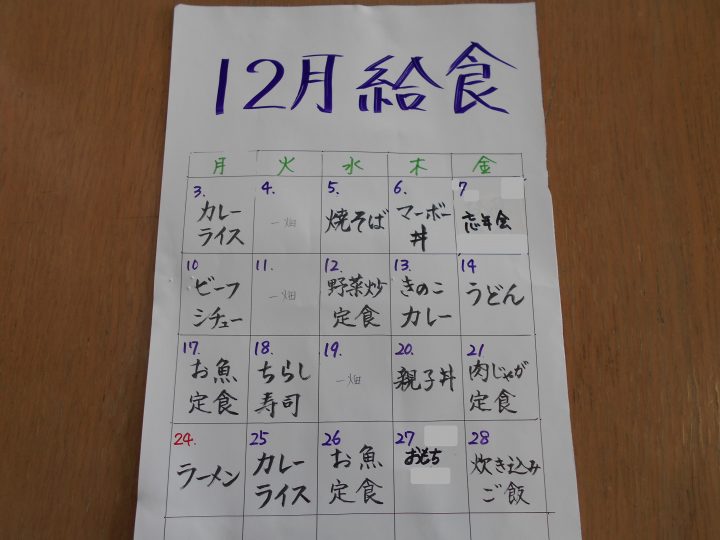 12月給食
月 火 水 木 金
3. 4. 5. 6. 7
カレー
ライス
一畑
焼そば
マーボー
丼
忘年会
10 11. 12. 13. 14
ビーフ
シチュー
一畑
野菜炒
定食
きのこ
カレー
うどん
17. 18. 19. 20. 21
お魚
定食
ちらし
寿司
一畑
親子丼
肉じゃが
定食
24. 25 26 27 28
ラーメン
カレー
ライス
お魚
定食
おもち
炊き込み
ご飯